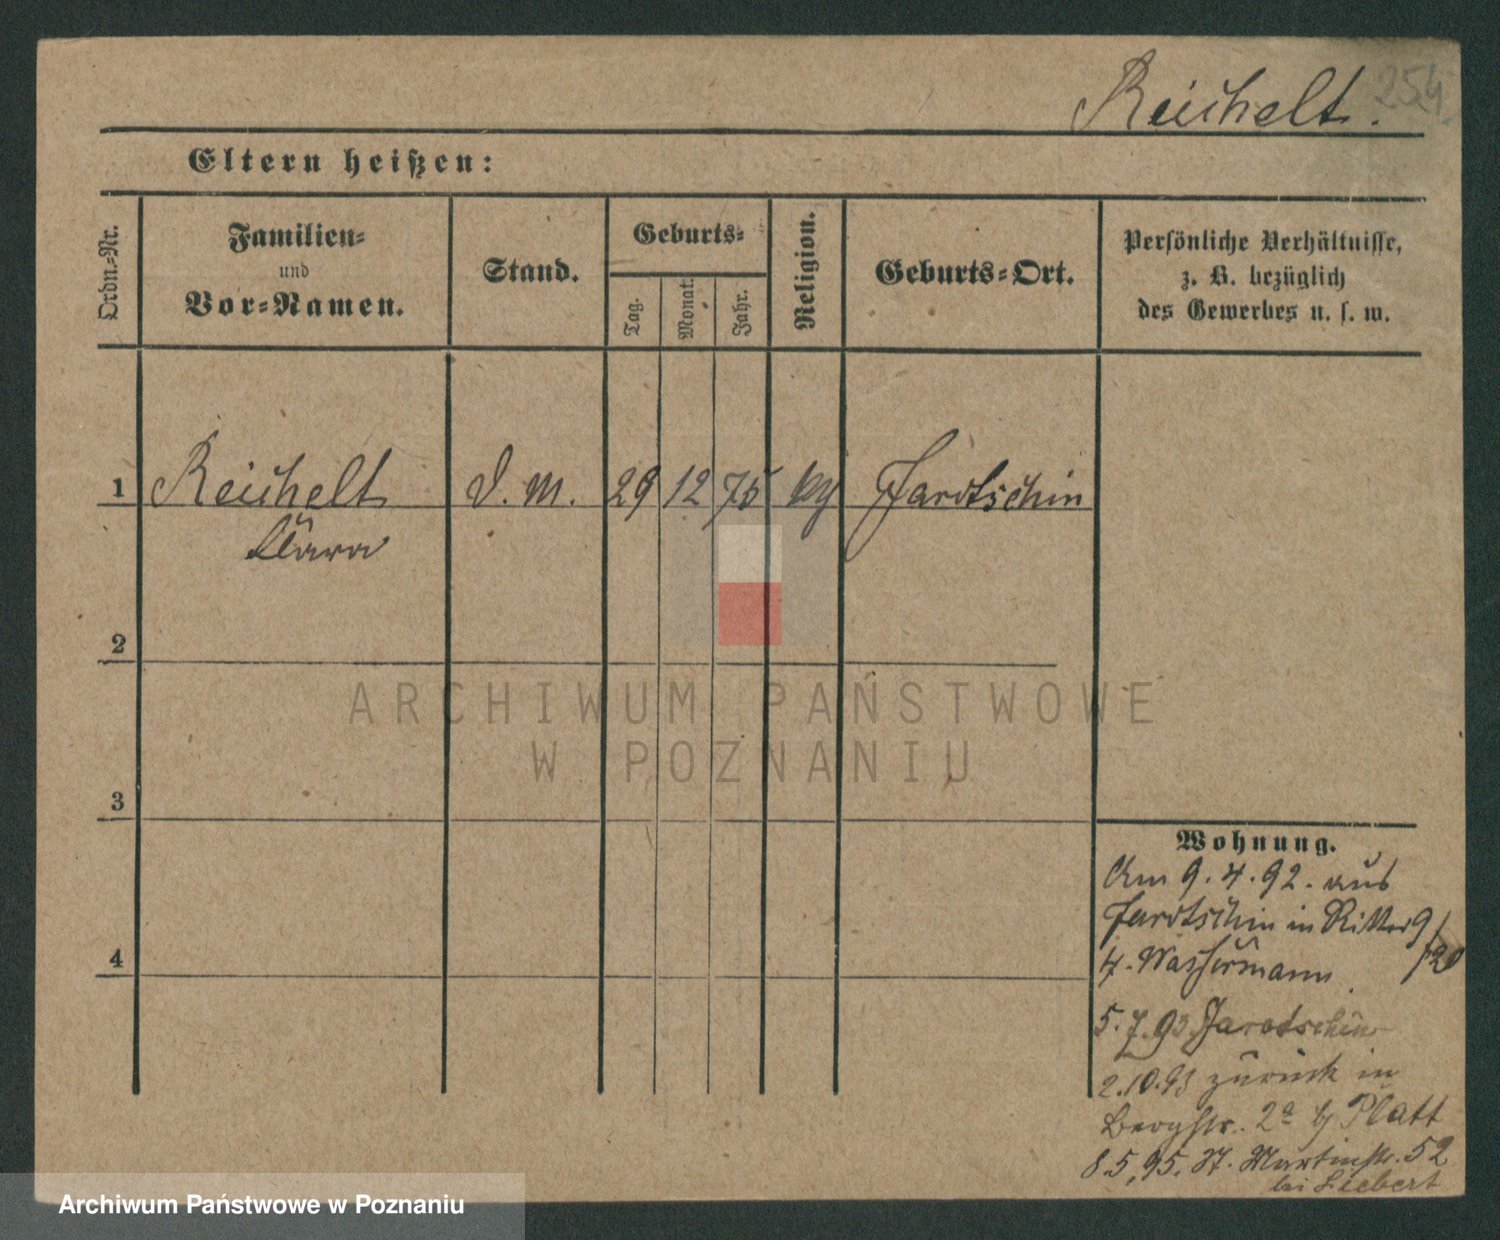 Reichelt.
254
Eltern heißen:
Ordn.-Nr.
Familien-
und
Vor-Namen.
Stand.
Geburts-
Tag.
Monat.
Jahr.
Religion.
Geburts-Ort.
Persönliche Verhältnisse,
z. B. bezüglich
des Gewerbes u. s. w.
1 Reichelt D. M. 29 12 75 Jarotschin
Clara
2
3
4
ARCHIWUM PAŃSTWOWE
W POZNANIU
Wohnung.
Am 9. 4. 92. aus
Jarotschin in Ritter 9/20
Wassermann
5. 7. 93 Jarotschin
2.10.93 zurück in
Bergstr. 2a Platt
8.5.95. Martinstr. 52
bei Liebert
Archiwum Państwowe w Poznaniu